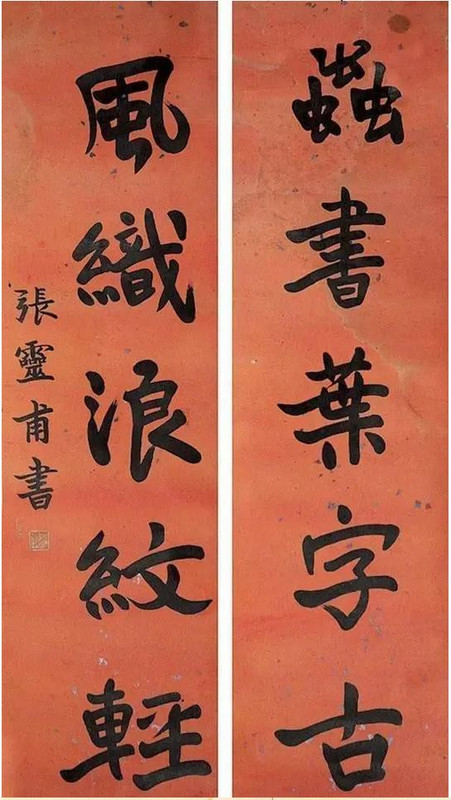 蟲書葉字古
風織浪紋輕
張靈甫書